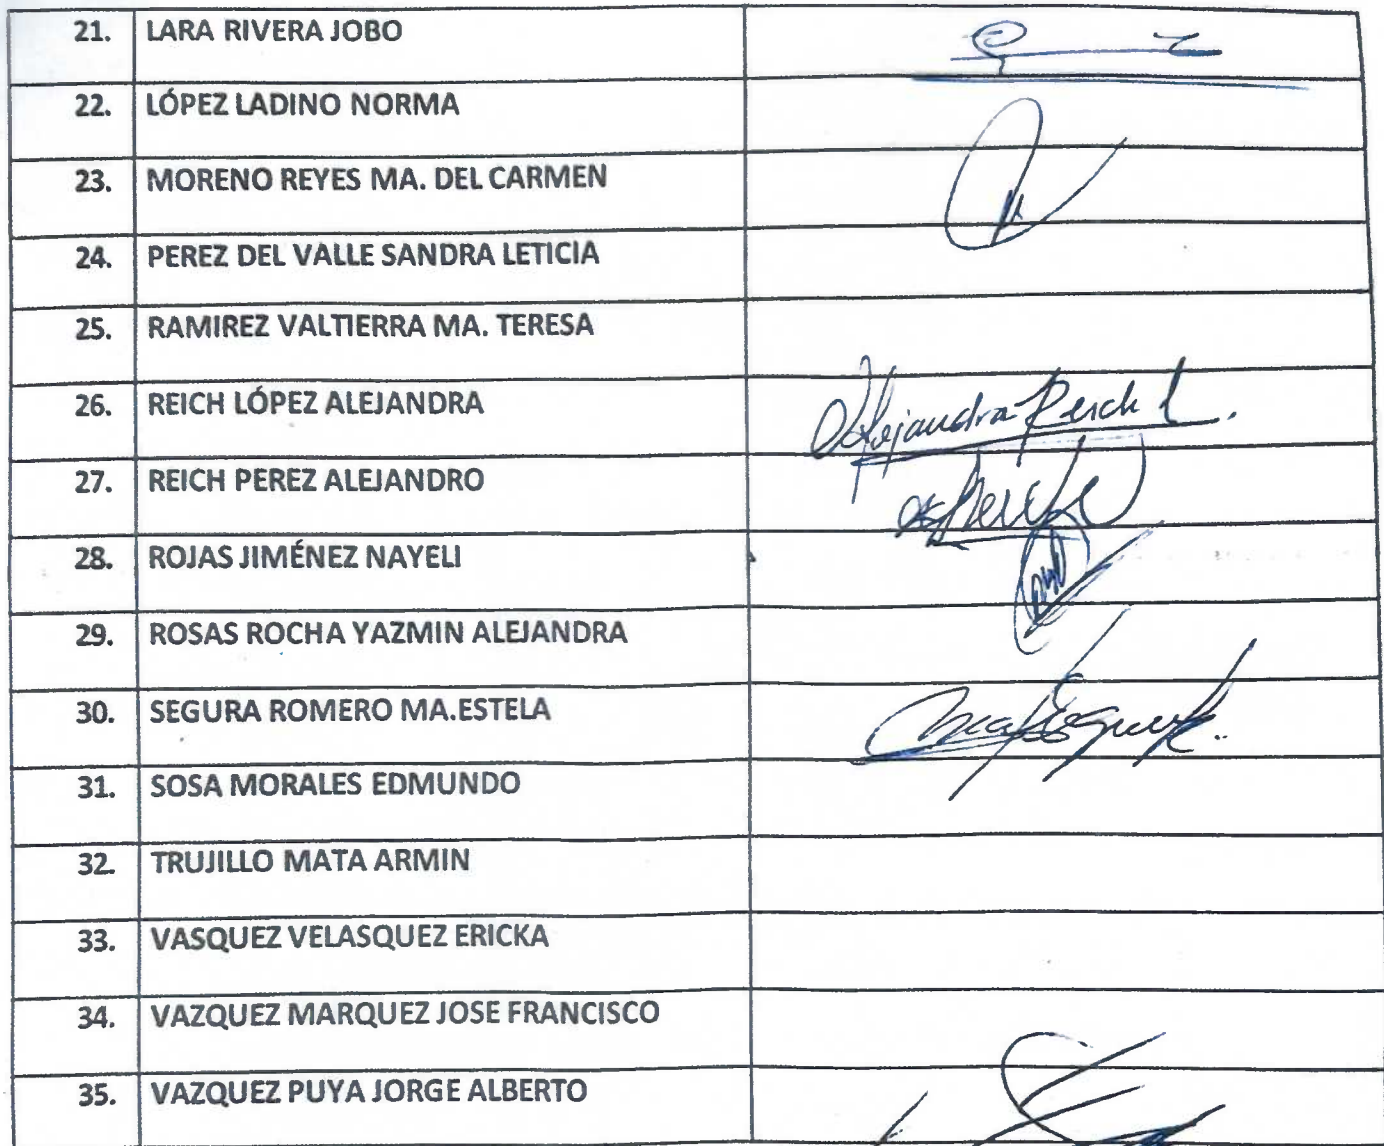 21. LARA RIVERA JOBO
22. LÓPEZ LADINO NORMA
23. MORENO REYES MA. DEL CARMEN
24. PEREZ DEL VALLE SANDRA LETICIA
25. RAMIREZ VALTIERRA MA. TERESA
26. REICH LÓPEZ ALEJANDRA Alejandra Reich L.
27. REICH PEREZ ALEJANDRO
28. ROJAS JIMÉNEZ NAYELI
29. ROSAS ROCHA YAZMIN ALEJANDRA
30. SEGURA ROMERO MA.ESTELA
31. SOSA MORALES EDMUNDO
32. TRUJILLO MATA ARMIN
33. VASQUEZ VELASQUEZ ERICKA
34. VAZQUEZ MARQUEZ JOSE FRANCISCO
35. VAZQUEZ PUYA JORGE ALBERTO